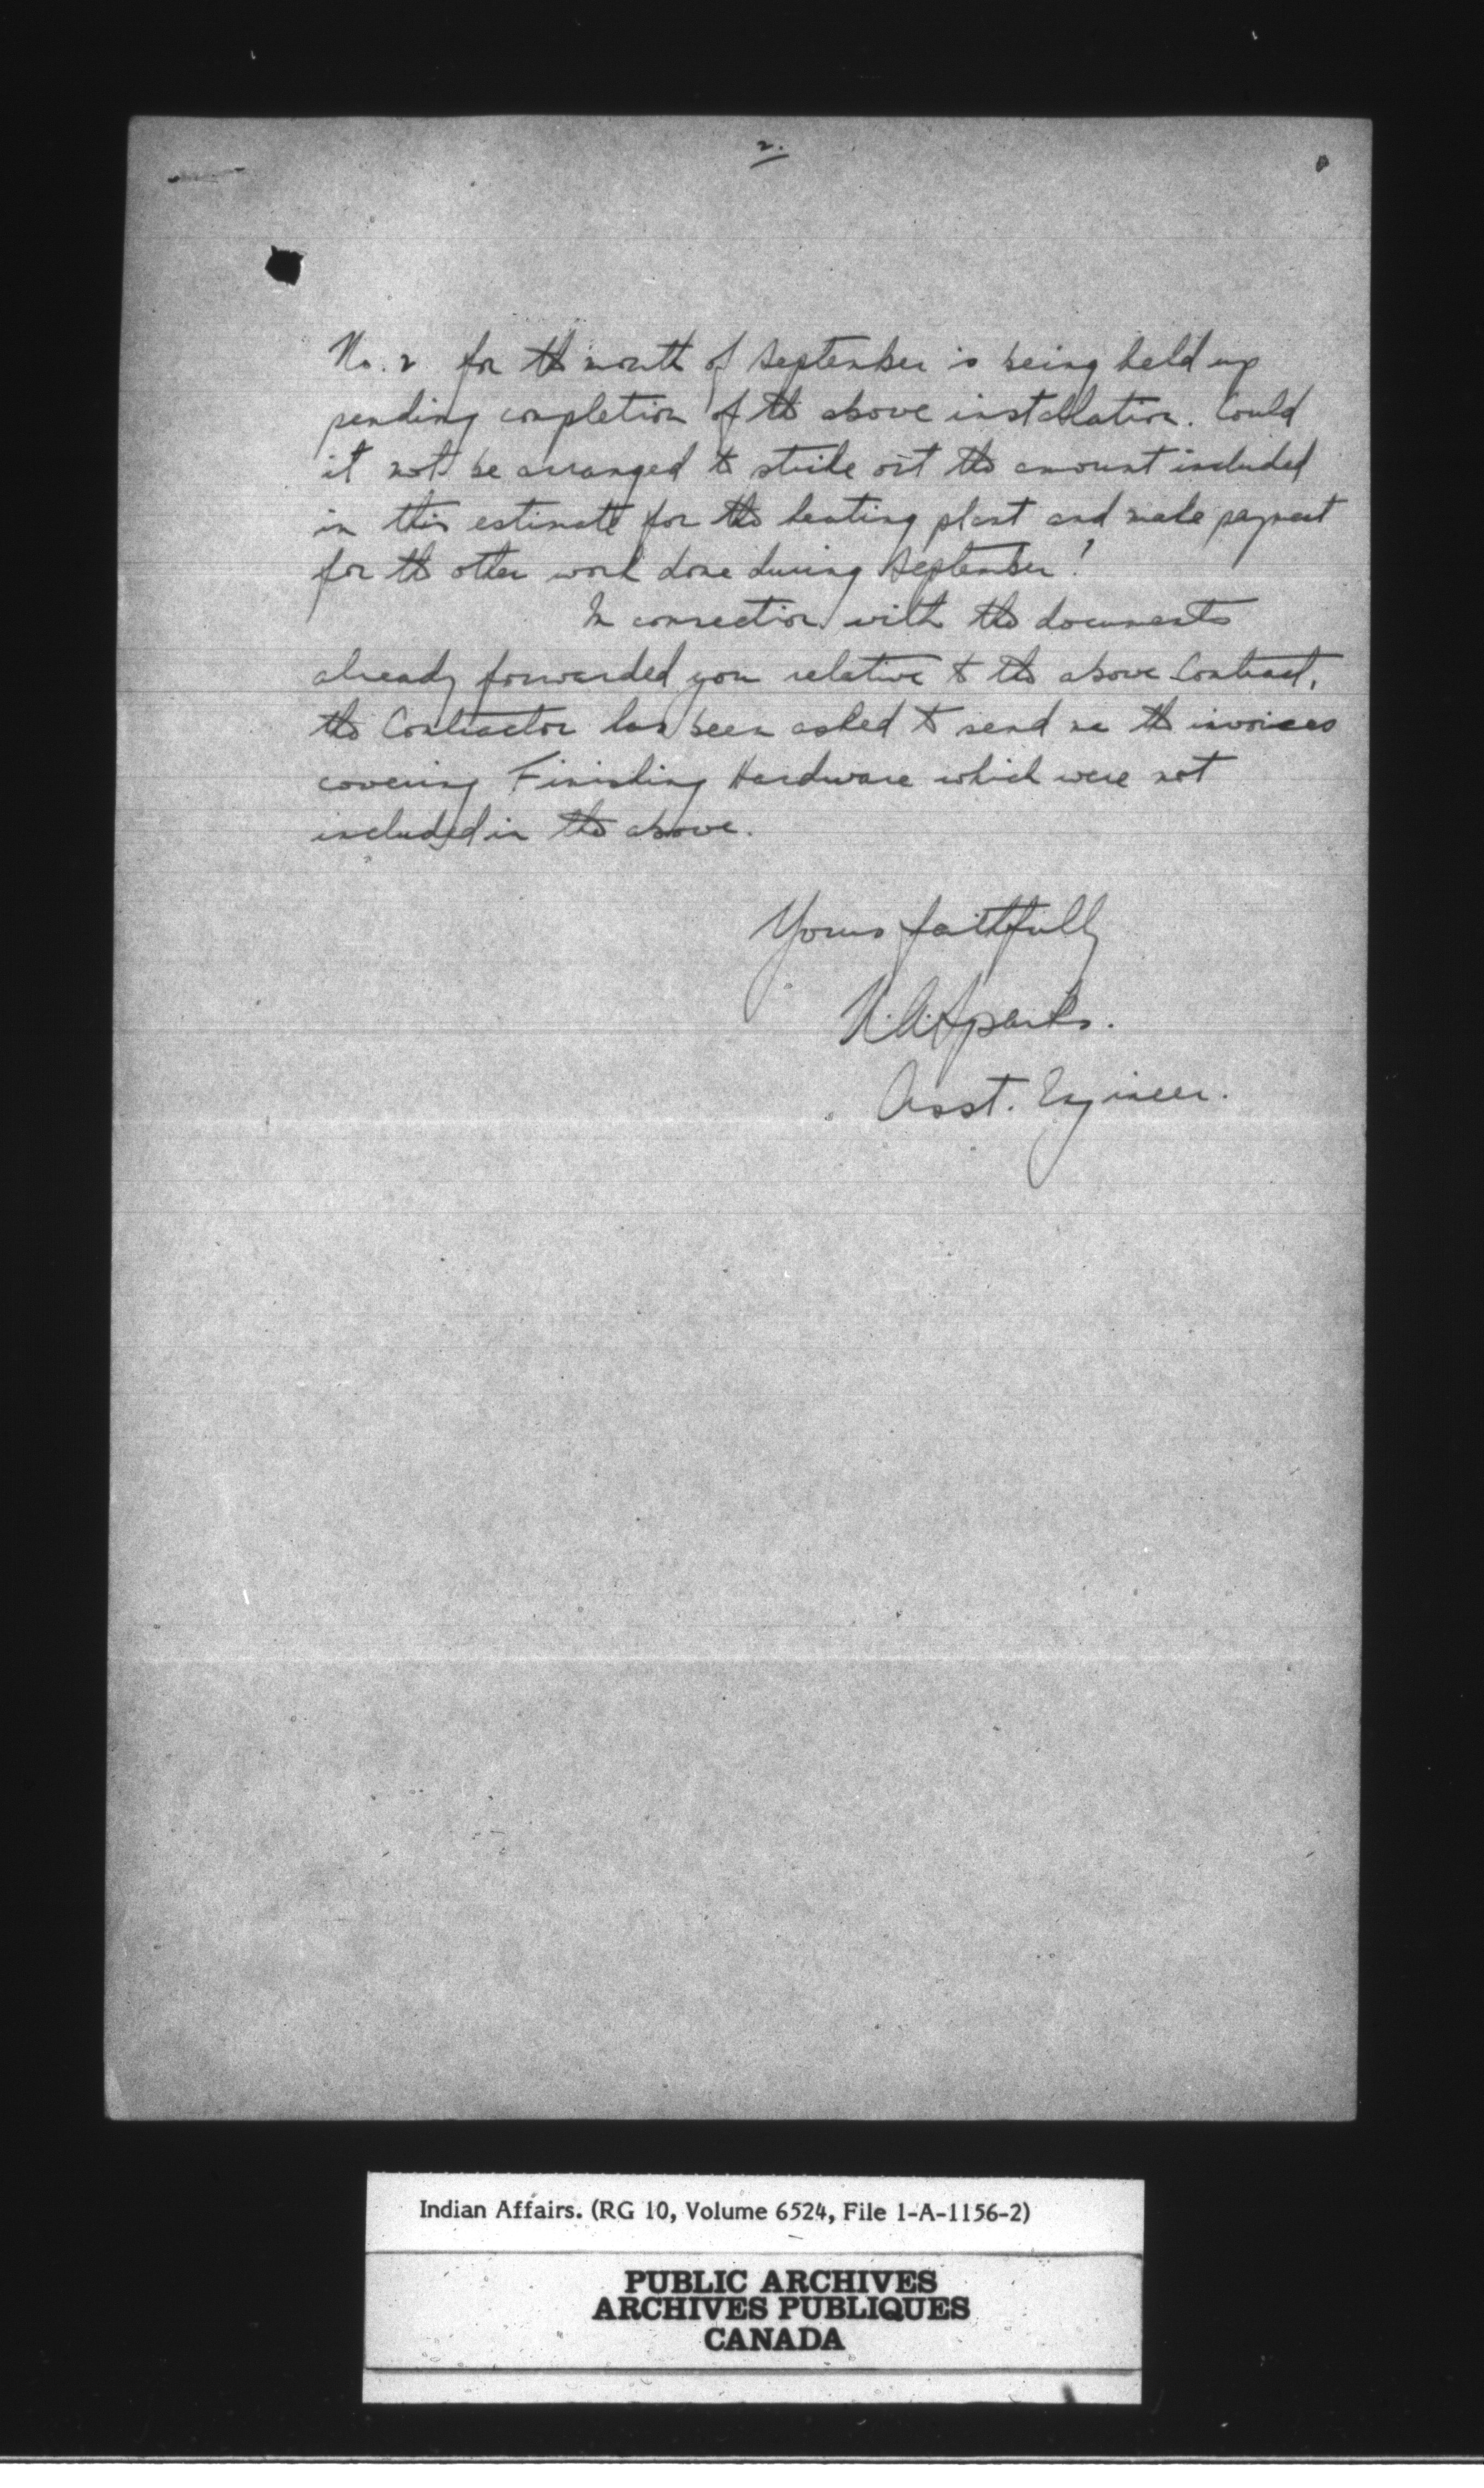 2.
No. 2 for the month of September is being held up
pending completion of the above installation. Could
it not be arranged to strike out the amount included
in this estimate for the heating plant and make payment
for the other work done during September?
In connection with the documents
already forwarded you relative to the above Contract,
the Contractor has been asked to send me the invoices
covering Finishing Hardware which were not
included in the above.
Yours faithfully
Sparks.
Asst. Engineer.
Indian Affairs. (RG 10, Volume 6524, File 1-A-1156-2)
PUBLIC ARCHIVES
ARCHIVES PUBLIQUES
CANADA